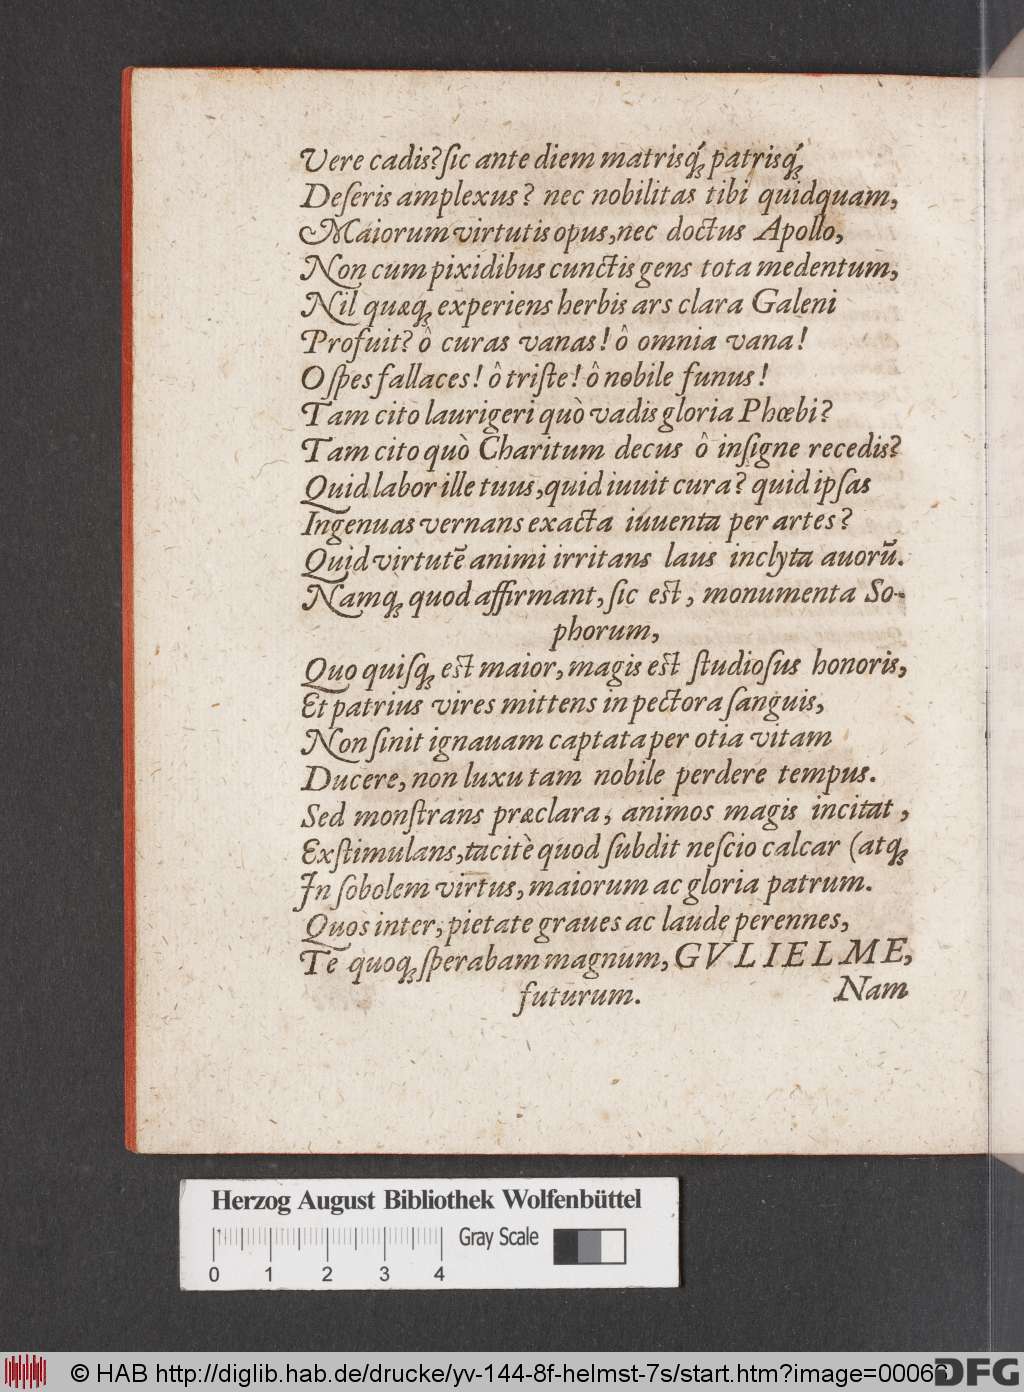 Vere cadis? ſic ante diem matrisq́; patrisq́;
Deſeris amplexus? nec nobilitas tibi quidquam,
Maiorum virtutis opus, nec doctus Apollo,
Non cum pixidibus cunctis gens tota medentum,
Nil quæq; experiens herbis ars clara Galeni
Profuit? ô curas vanas! ô omnia vana!
O ſpes fallaces! ô triſte! ô nobile funus!
Tam cito laurigeri quò vadis gloria Phœbi?
Tam cito quò Charitum decus ô inſigne recedis?
Quid labor ille tuus, quid iuuit cura? quid ipſas
Ingenuas vernans exacta iuuenta per artes?
Quid virtutē animi irritans laus inclyta auorū.
Namq; quod affirmant, ſic est, monumenta So-
phorum,
Quo quiſq; est maior, magis est ſtudioſus honoris,
Et patrius vires mittens in pectora ſanguis,
Non ſinit ignauam captata per otia vitam
Ducere, non luxu tam nobile perdere tempus.
Sed monſtrans præclara, animos magis incitat,
Exſtimulans, tacitè quod ſubdit neſcio calcar (atq;
In ſobolem virtus, maiorum ac gloria patrum.
Quos inter, pietate graues ac laude perennes,
Te quoq; ſperabam magnum, GVLIELME,
futurum. Nam
Herzog August Bibliothek Wolfenbüttel
Gray Scale
0 1 2 3 4
© HAB http://diglib.hab.de/drucke/yv-144-8f-helmst-7s/start.htm?image=00066
DFG